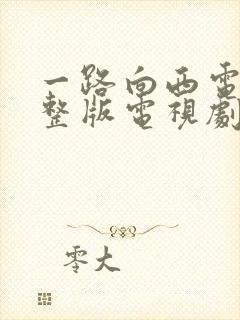 一路向西電
整版電視劇
零大